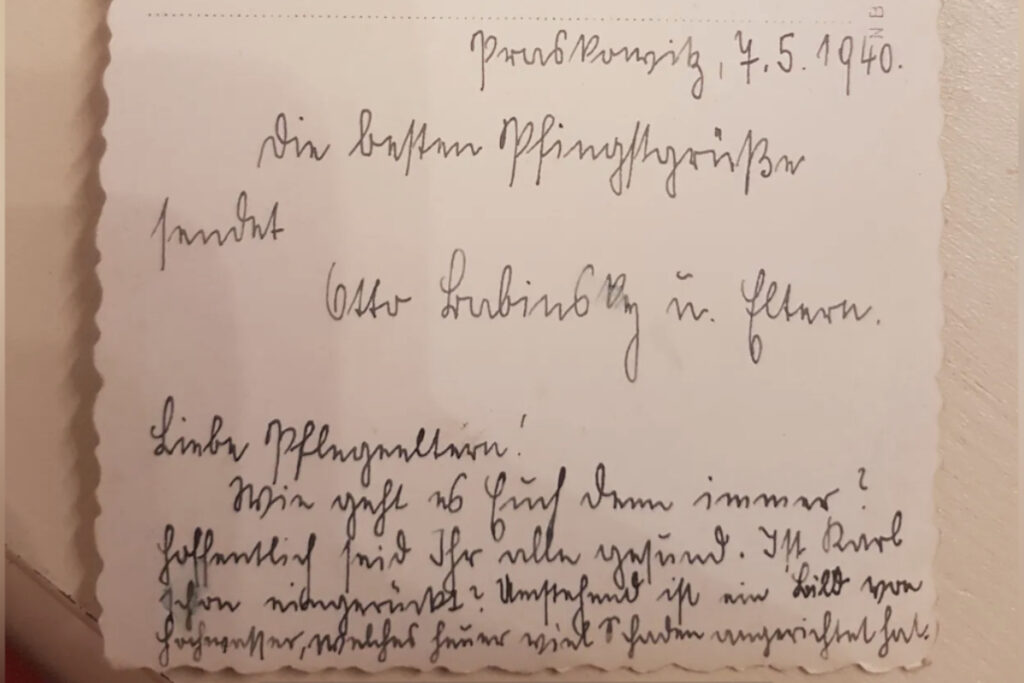 Praskowitz, 7.5.1940.
Die besten Pfingstgrüße
sendet
Otto Babinsky u. Eltern.
Liebe Pflegeeltern!
Wie geht es Euch denn immer?
Hoffentlich seid Ihr alle gesund. Ist Karl
schon eingerückt? Umstehend ist ein Bild von
Hochwasser, welches heuer viel Schaden angerichtet hat.